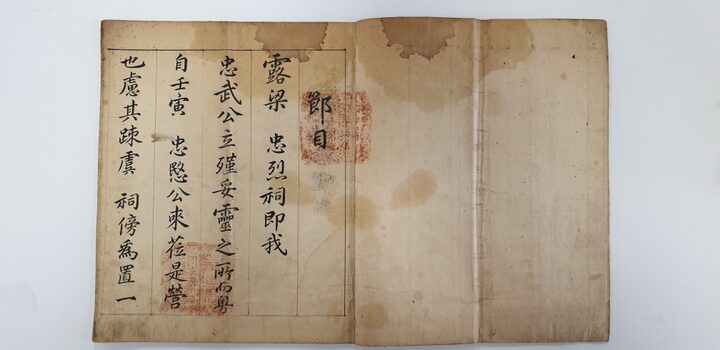 節目
露梁 忠烈祠即我
忠武公立殣妥靈之所而粤
自壬寅 忠愍公來莅是營
也慮其疎虞 祠傍爲置一